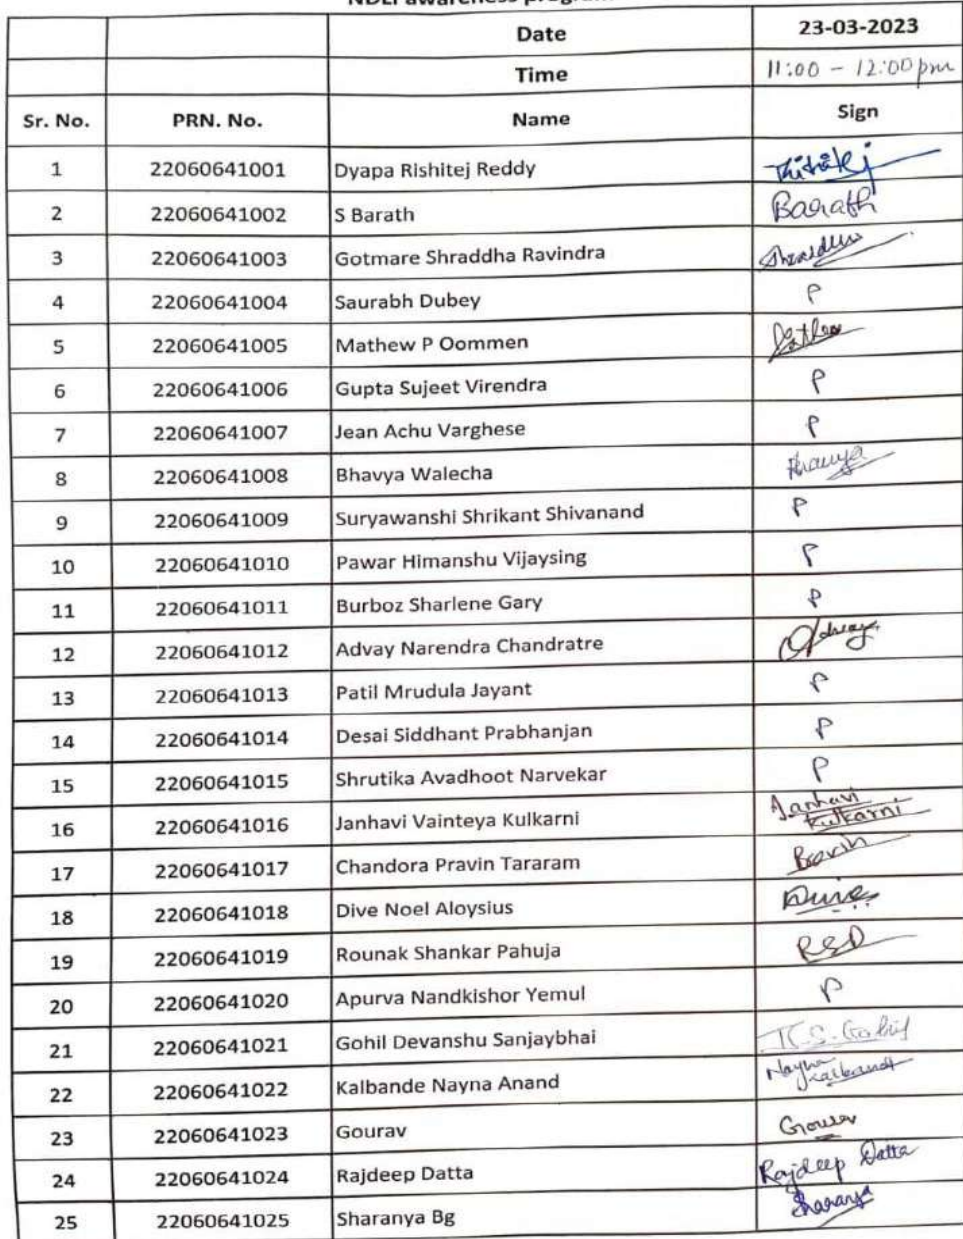 NDLI awareness program
Date 23-03-2023
Time 11:00 - 12:00 pm
Sr. No. PRN. No. Name Sign
1 22060641001 Dyapa Rishitej Reddy
2 22060641002 S Barath Barath
3 22060641003 Gotmare Shraddha Ravindra
4 22060641004 Saurabh Dubey P
5 22060641005 Mathew P Oommen
6 22060641006 Gupta Sujeet Virendra P
7 22060641007 Jean Achu Varghese P
8 22060641008 Bhavya Walecha
9 22060641009 Suryawanshi Shrikant Shivanand P
10 22060641010 Pawar Himanshu Vijaysing P
11 22060641011 Burboz Sharlene Gary P
12 22060641012 Advay Narendra Chandratre Advay
13 22060641013 Patil Mrudula Jayant P
14 22060641014 Desai Siddhant Prabhanjan P
15 22060641015 Shrutika Avadhoot Narvekar P
16 22060641016 Janhavi Vainteya Kulkarni Janhavi Kulkarni
17 22060641017 Chandora Pravin Tararam
18 22060641018 Dive Noel Aloysius
19 22060641019 Rounak Shankar Pahuja
20 22060641020 Apurva Nandkishor Yemul P
21 22060641021 Gohil Devanshu Sanjaybhai
22 22060641022 Kalbande Nayna Anand Nayna Kalbande
23 22060641023 Gourav Gourav
24 22060641024 Rajdeep Datta Rajdeep Datta
25 22060641025 Sharanya Bg Sharanya